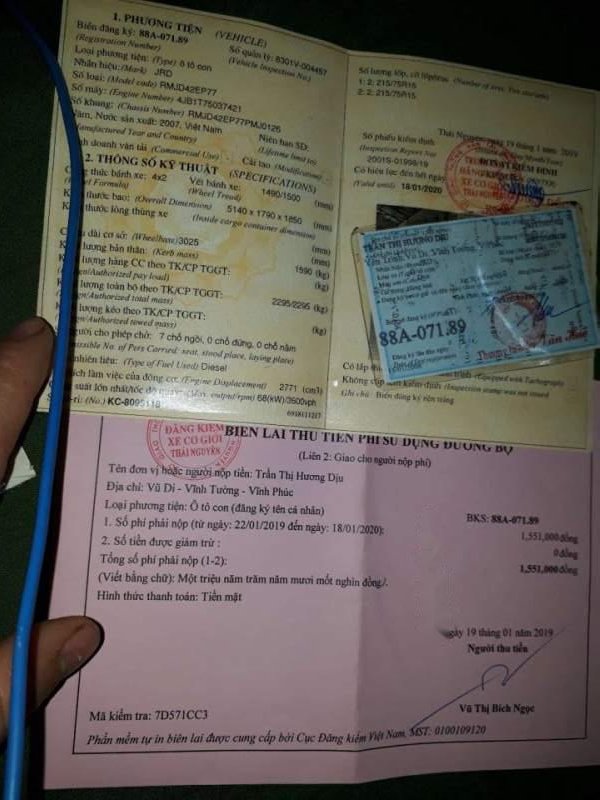 1. PHƯƠNG TIỆN (VEHICLE)
Biển đăng ký: 88A-071.89
(Registration Number)
Số quản lý: 8301V-004457
(Vehicle Inspection No.)
Loại phương tiện: (Type) ô tô con
Nhãn hiệu: (Mark) JRD
Số loại: (Model code) RMJD42EP77
Số máy: (Engine Number) 4JB1T75037421
Số khung: (Chassis Number) RMJD42EP77PMJ0126
Năm, Nước sản xuất: 2007, Việt Nam
Manufactured Year and Country)
Niên hạn SD:
(Lifetime limit to)
Kinh doanh vận tải (Commercial Use)
Cải tạo (Modification)
2. THÔNG SỐ KỸ THUẬT (SPECIFICATIONS)
thức bánh xe: 4x2
Vết bánh xe: 1490/1500 (mm)
(Wheel Formula)
(Wheel Tread)
thước bao: (Overall Dimension) 5140 x 1790 x 1850 (mm)
thước lòng thùng xe
(Inside cargo container dimension) (mm)
dài cơ sở: (Wheelbase) 3025 (mm)
lượng bản thân: (Kerb mass) 1590 (kg)
lượng hàng CC theo TK/CP TGGT:
Design/Authorized pay load) (kg)
lượng toàn bộ theo TK/CP TGGT:
Design/Authorized total mass) 2295/2295 (kg)
lượng kéo theo TK/CP TGGT:
Design/Authorized towed mass) (kg)
người cho phép chở: 7 chỗ ngồi, 0 chỗ đứng, 0 chỗ nằm
No. of Pers Carried: seat, stood place, laying place)
nhiên liệu: (Type of Fuel Used) Diesel
tích làm việc của động cơ: (Engine Displacement) 2771 (cm3)
suất lớn nhất/tốc độ quay: (Max. output/rpm) 68(kW)/3600vph
(No.) KC-8095118
Số lượng lốp, cỡ lốp/trục (Number of Tires; Tire size/axle)
1: 2; 215/75R15
2: 2; 215/75R15
Thái Nguyên, ngày 19 tháng 1 năm 2019
Số phiếu kiểm định
(Inspection Report No)
2001S-01998/19
Có hiệu lực đến hết ngày
(Valid until) 18/01/2020
ĐĂNG KIỂM
XE CƠ GIỚI
THÁI NGUYÊN
TRẦN THỊ HƯƠNG DỊU
Vũ Di, Vĩnh Tường,
88A-071.89
(Equipped with Tachograph)
(Inspection stamp was not issued)
Ghi chú: Biển đăng ký nền trắng
BIÊN LAI THU TIỀN PHÍ SỬ DỤNG ĐƯỜNG BỘ
(Liên 2: Giao cho người nộp phí)
ĐĂNG KIỂM
XE CƠ GIỚI
THÁI NGUYÊN
Tên đơn vị hoặc người nộp tiền: Trần Thị Hương Dịu
Địa chỉ: Vũ Di - Vĩnh Tường - Vĩnh Phúc
Loại phương tiện: Ô tô con (đăng ký tên cá nhân)
BKS: 88A-071.89
1. Số phí phải nộp (từ ngày: 22/01/2019 đến ngày: 18/01/2020): 1,551,000đồng
2. Số tiền được giảm trừ: 0đồng
Tổng số phí phải nộp (1-2): 1,551,000đồng
(Viết bằng chữ): Một triệu năm trăm năm mươi mốt nghìn đồng./.
Hình thức thanh toán: Tiền mặt
gày 19 tháng 01 năm 2019
Người thu tiền
Vũ Thị Bích Ngọc
Mã kiểm tra: 7D571CC3
Phần mềm tự in biên lai được cung cấp bởi Cục Đăng kiểm Việt Nam, MST: 0100109120